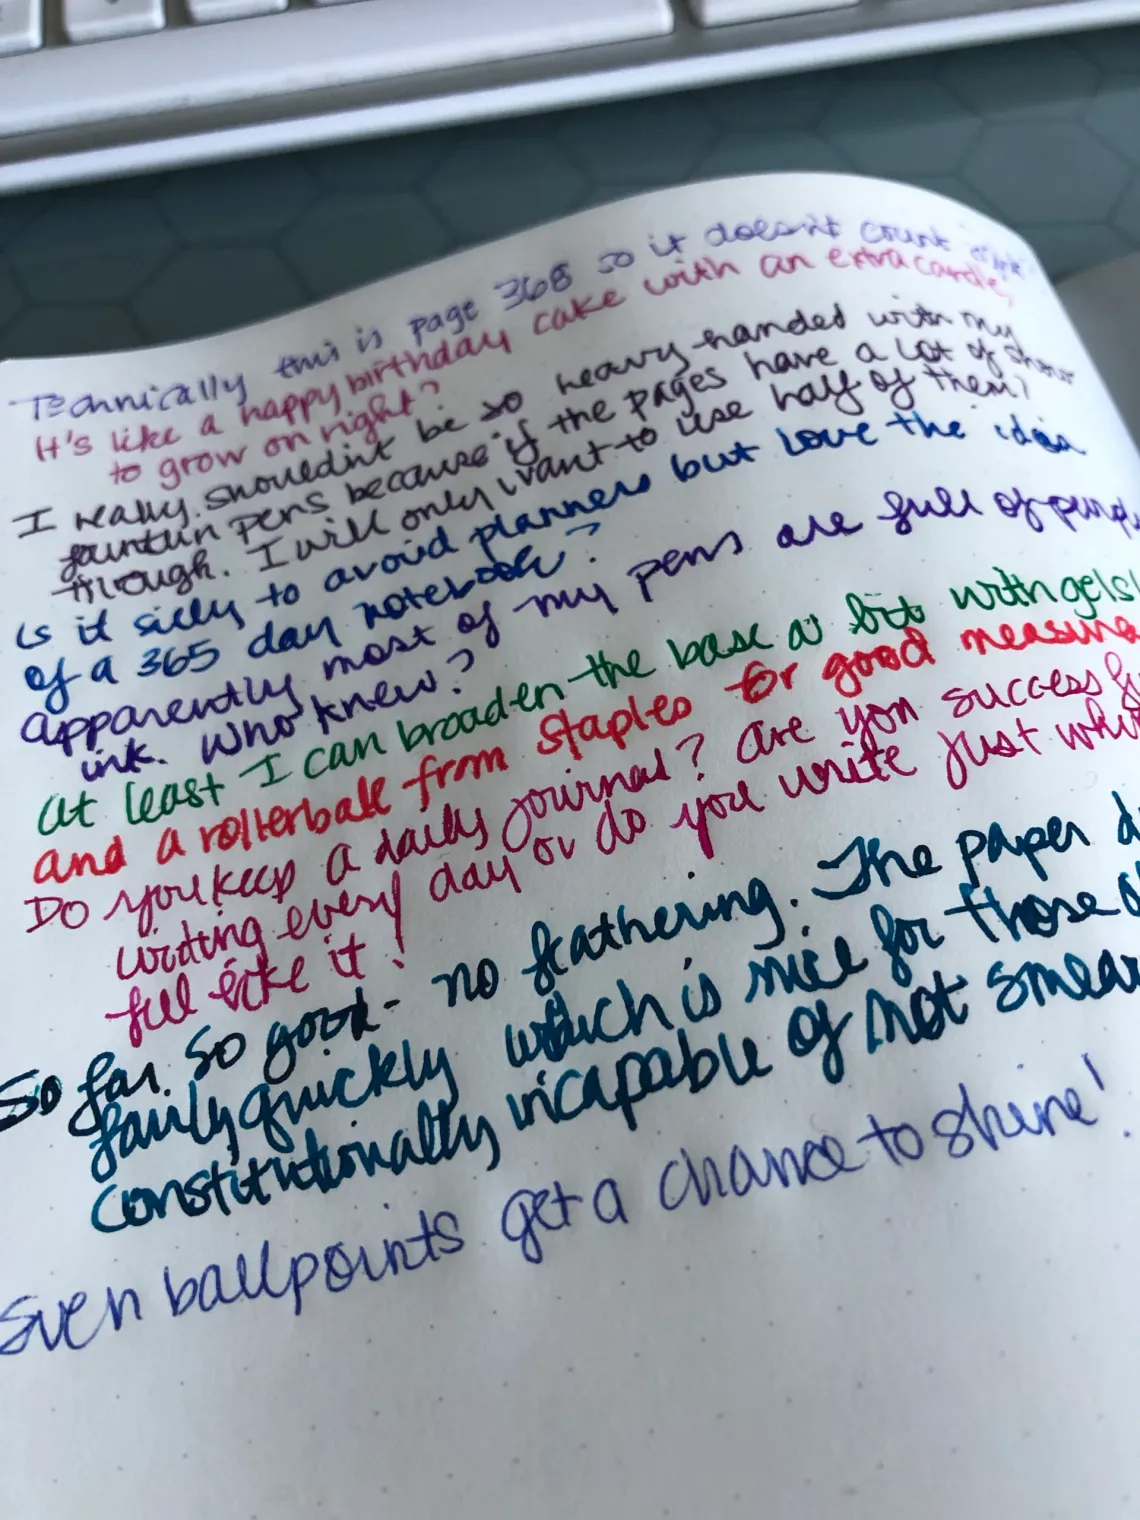 Technically this is page 368 so it doesn't count right
It's like a happy birthday cake with an extra candle,
to grow on right?
I really shouldn't be so heavy-handed with my
fountain pens because if the pages have a lot of show
through. I will only want to use half of them?
Is it silly to avoid planners but love the idea
of a 365 day notebook?
Apparently most of my pens are full of purple
ink. Who knew?
At least I can broaden the base a bit with gels!
and a rollerball from Staples for good measure
Do you keep a daily journal? Are you success
writing every day or do you write just
feel like it?
So far so good - no feathering. The paper
fairly quickly which is nice for those
constitutionally incapable of not smear
Even ballpoints get a chance to shine!